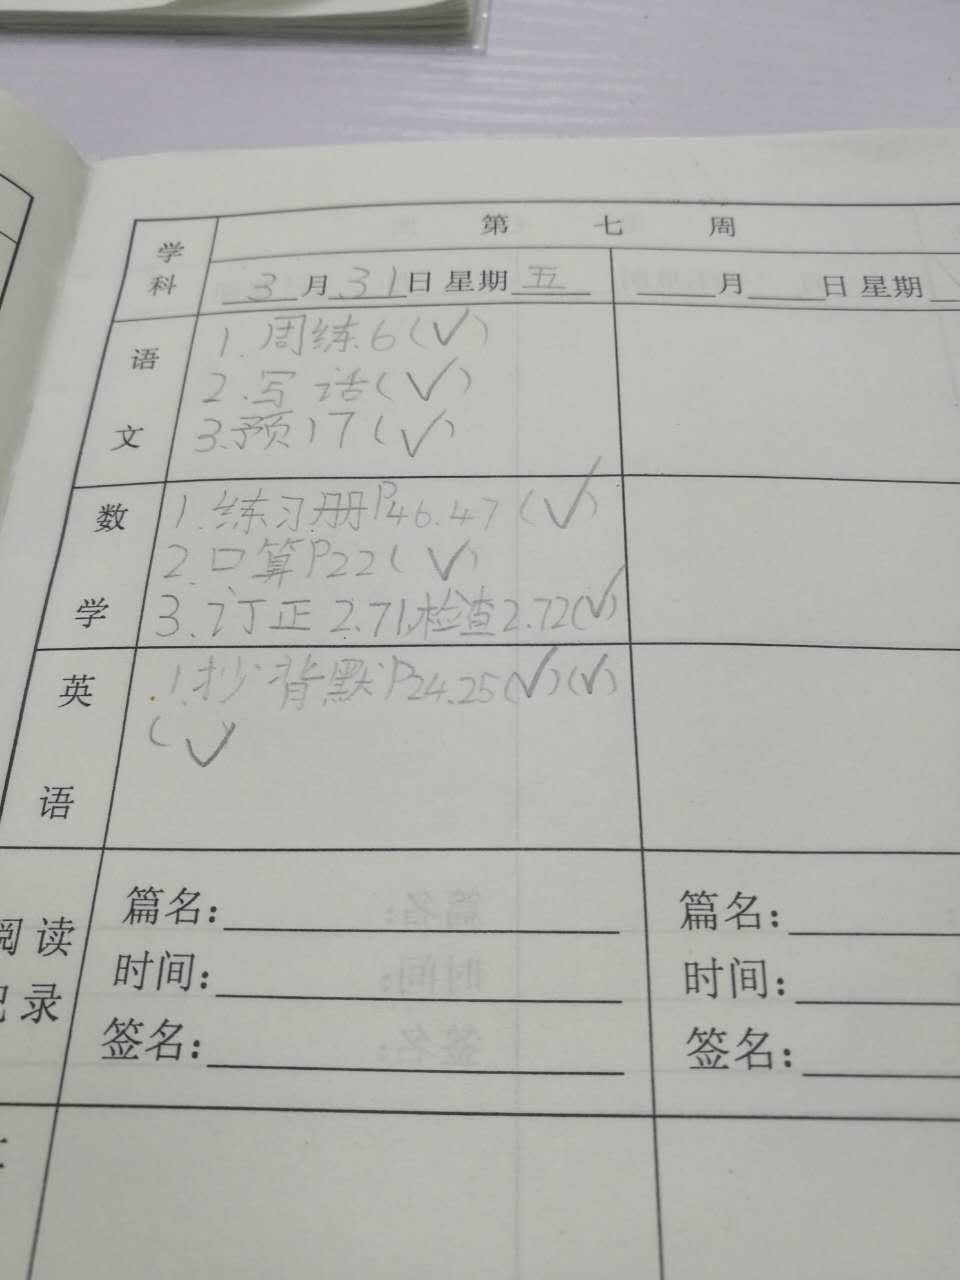 学科
第七周
3月31日星期五
月 日星期
语文
1.周练6(√)
2.写话(√)
3.预17(√)
数学
1.练习册P46.47(√)
2.口算P22(√)
3.订正2.71,检查2.72(√)
英语
1.抄背默P24.25(√)(√)
(√)
阅读
记录
篇名:
时间:
签名:
篇名:
时间:
签名: